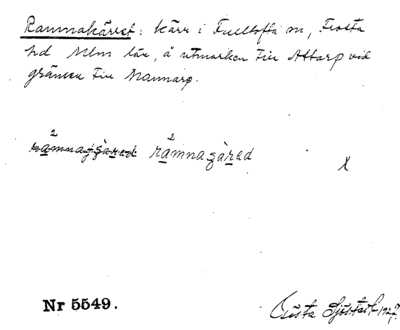 Ramnakärret: kärr i Fulltofta sn, Frosta
hd Mlm län, å utmarken till Attarp vid
gränsen till Nannarp.
2 2
ramnagàred ramnagàred
X
Nr 5549.
Gösta Sjöstedt 1927.